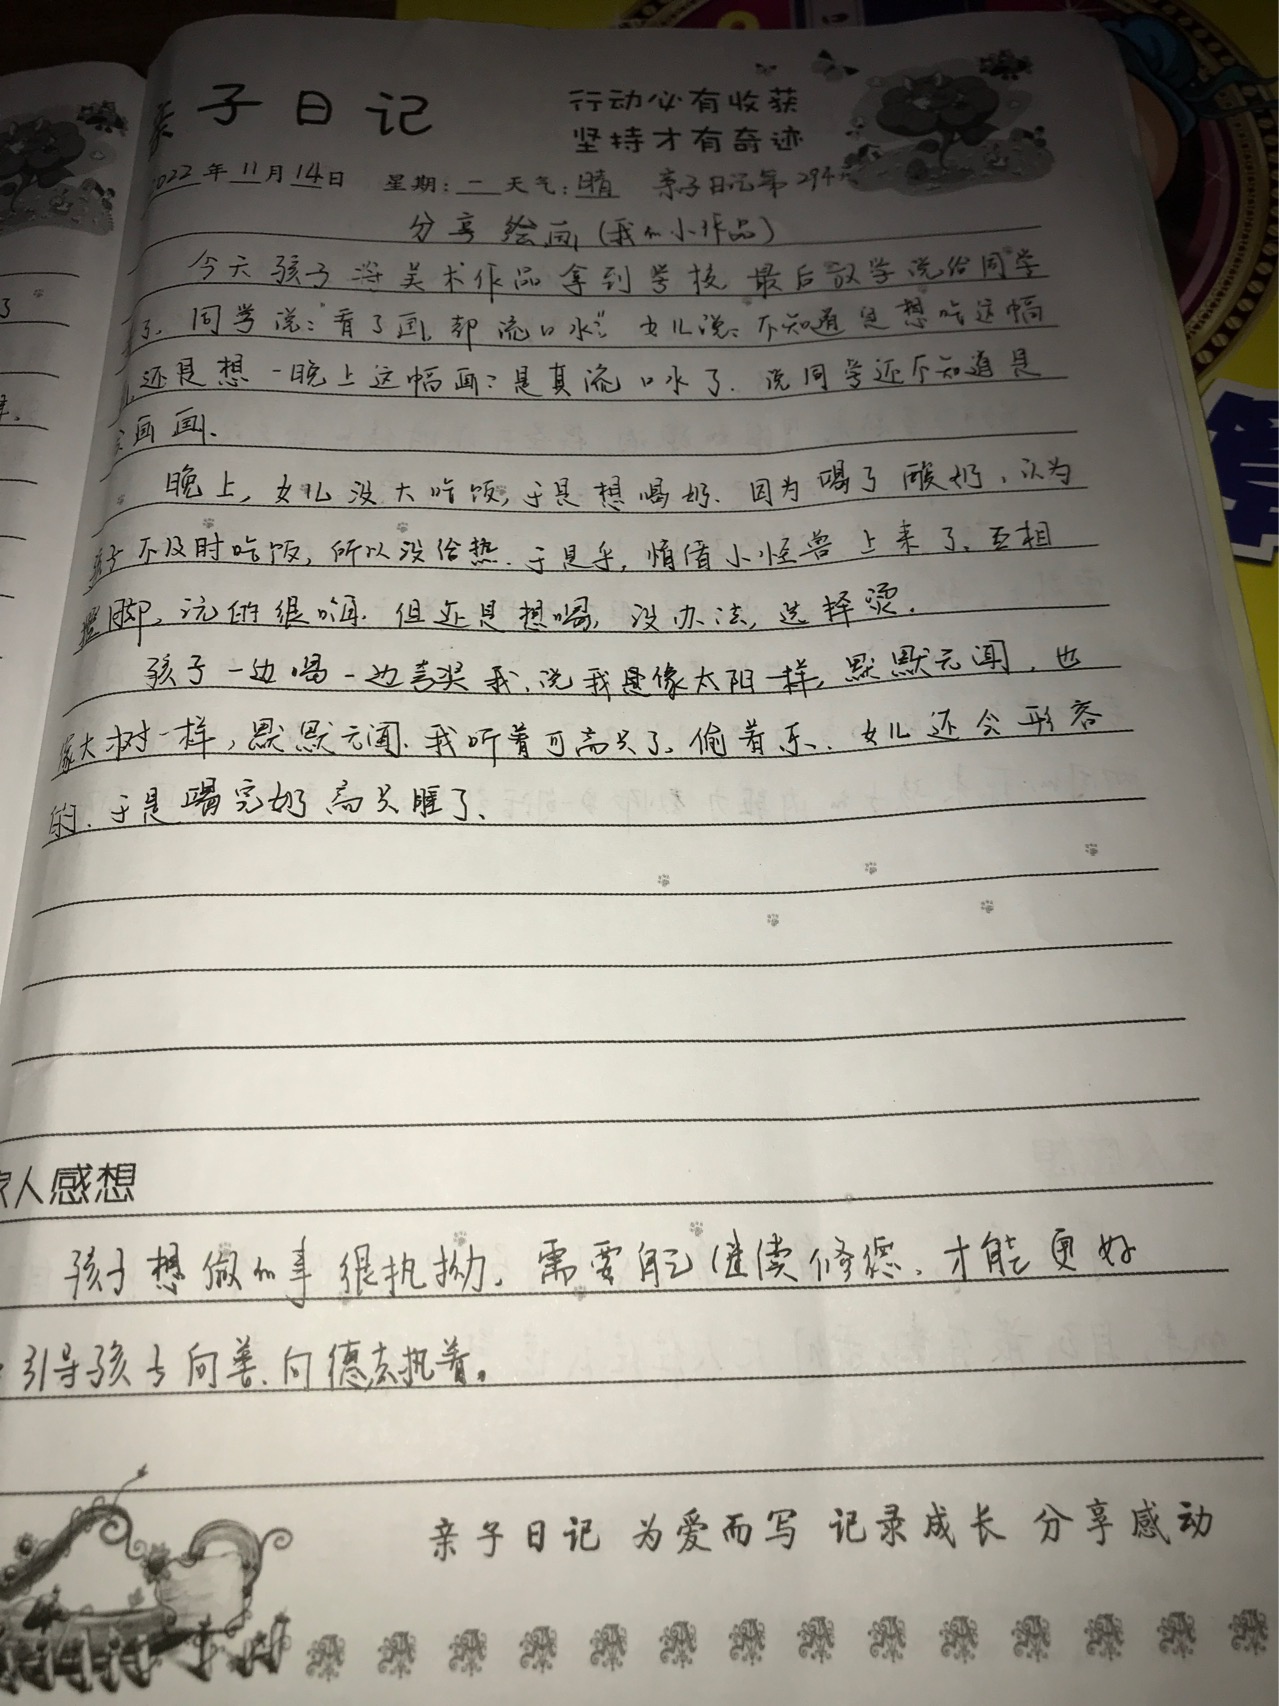 亲子日记
行动必有收获
坚持才有奇迹
2022年11月14日 星期:一 天气:晴 亲子日记第294天
分享绘画(我的小作品)
今天孩子将美术作品拿到学校,最后放学说给同学
了.同学说:"看了画,却流口水".女儿说:不知道是想吃这幅
还是想一晚上这幅画?是真流口水了.说同学还不知道是
画画.
晚上,女儿没大吃饭,于是想喝奶.因为喝了酸奶,认为
孩子不及时吃饭,所以没给热.于是乎,情绪小怪兽上来了.互相
脚,沉的很嘛.但还是想喝,没办法,选择烫.
孩子一边喝一边夸奖我,说我是像太阳一样,默默无闻,也
像大树一样,默默无闻.我听着可高兴了.偷着乐.女儿还会形容
的.于是喝完奶高兴睡了.
家人感想
孩子想做的事很执拗,需要自己继续修德,才能更好
引导孩子向善.向德去执着。
亲子日记 为爱而写 记录成长 分享感动